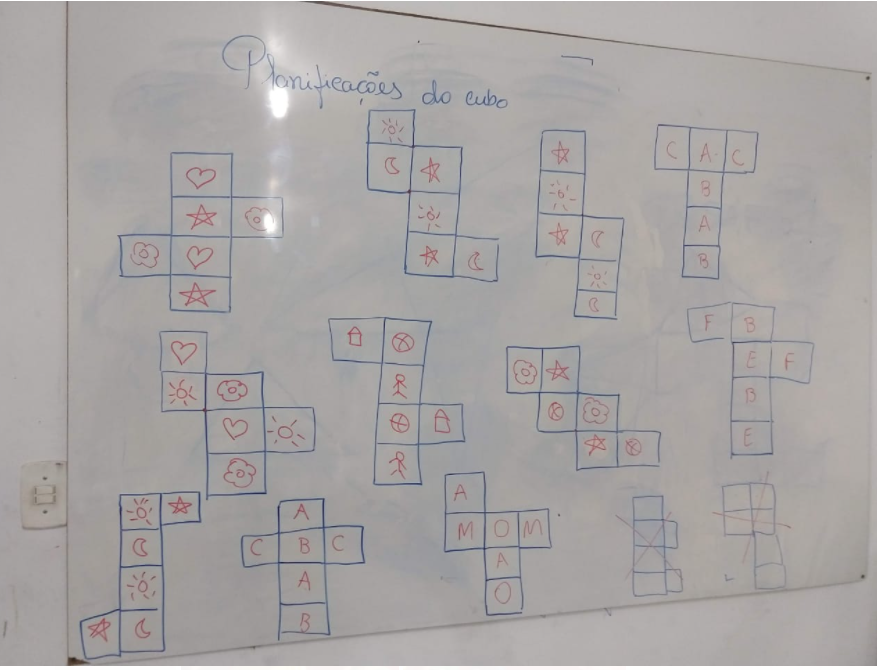 Planificações do cubo
C A C
B
A
B
F B
E F
B
E
A
C B C
A
B
A
M O M
A
O